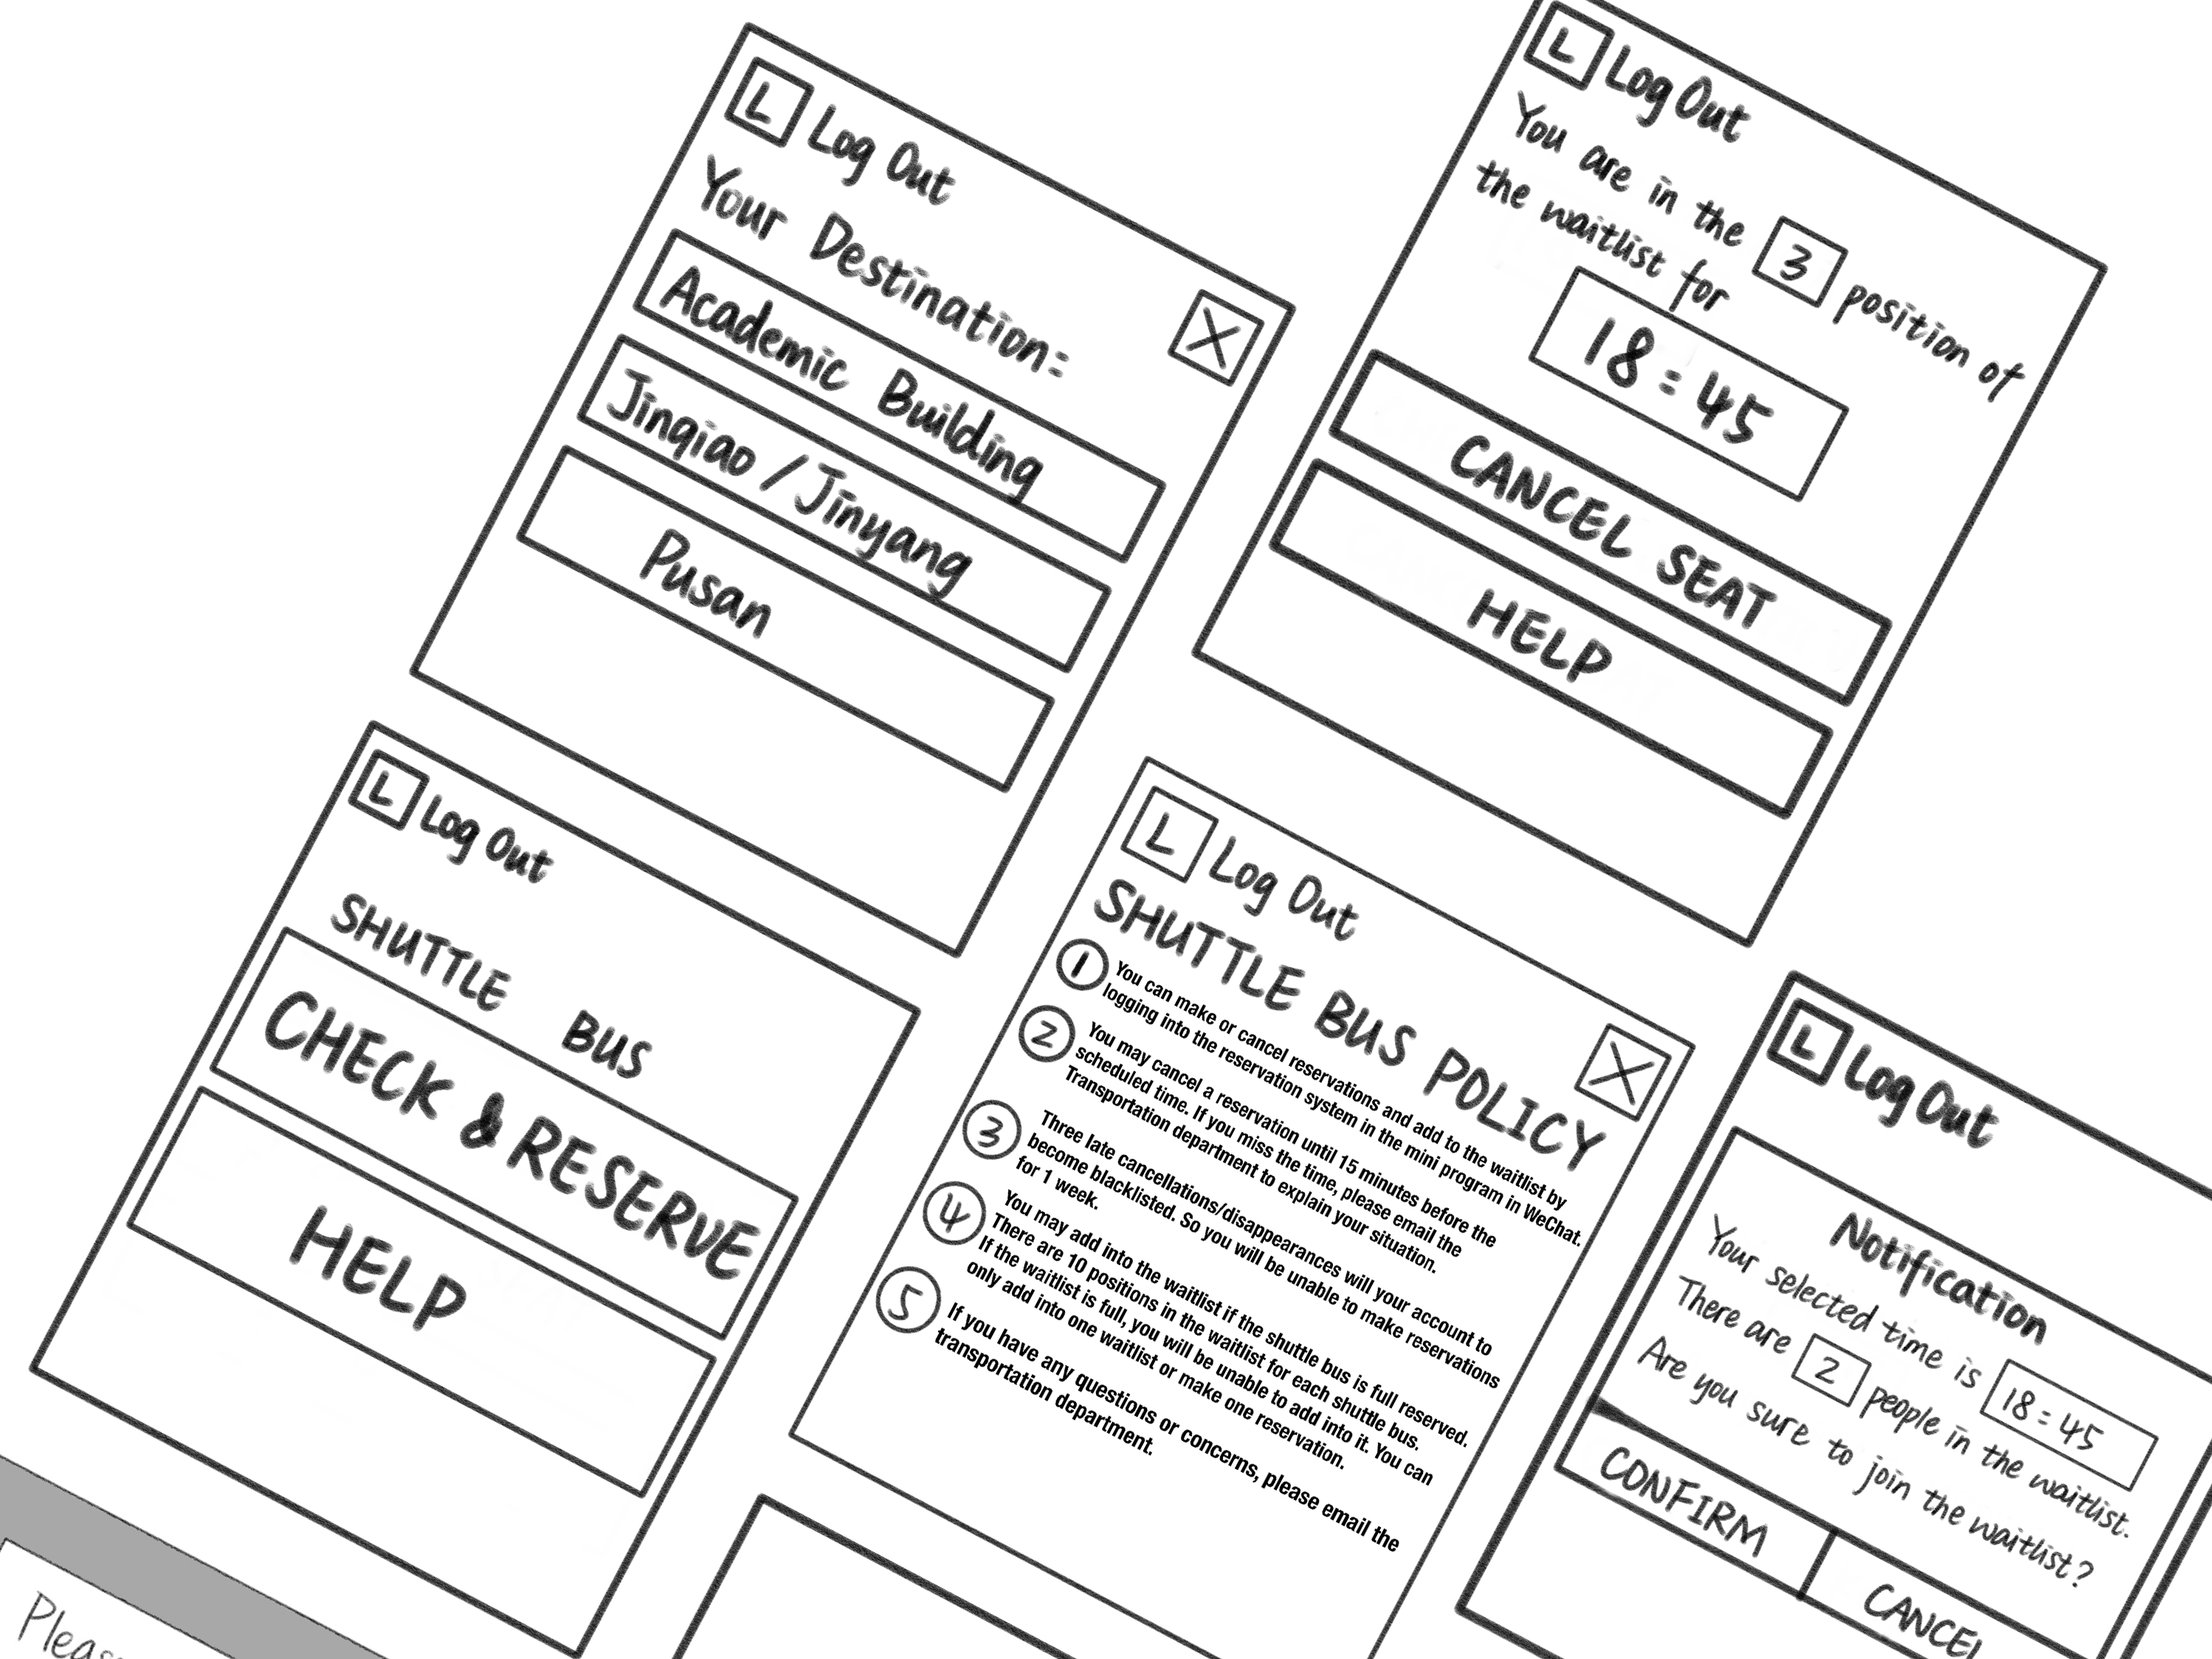 L Log Out
Your Destination:
Academic Building
Jinqiao / Jinyang
Pusan
X
L Log Out
You are in the 3 position of
the waitlist for
18:45
CANCEL SEAT
HELP
L Log Out
SHUTTLE BUS
CHECK & RESERVE
HELP
L Log Out
SHUTTLE BUS POLICY
X
1 You can make or cancel reservations and add to the waitlist by
logging into the reservation system in the mini program in WeChat.
2 You may cancel a reservation until 15 minutes before the
scheduled time. If you miss the time, please email the
Transportation department to explain your situation.
3 Three late cancellations/disappearances will your account to
become blacklisted. So you will be unable to make reservations
for 1 week.
4 You may add into the waitlist if the shuttle bus is full reserved.
There are 10 positions in the waitlist for each shuttle bus.
If the waitlist is full, you will be unable to add into it. You can
only add into one waitlist or make one reservation.
5 If you have any questions or concerns, please email the
transportation department.
L Log Out
Notification
Your selected time is 18:45
There are 2 people in the waitlist.
Are you sure to join the waitlist?
CONFIRM
CANCEL